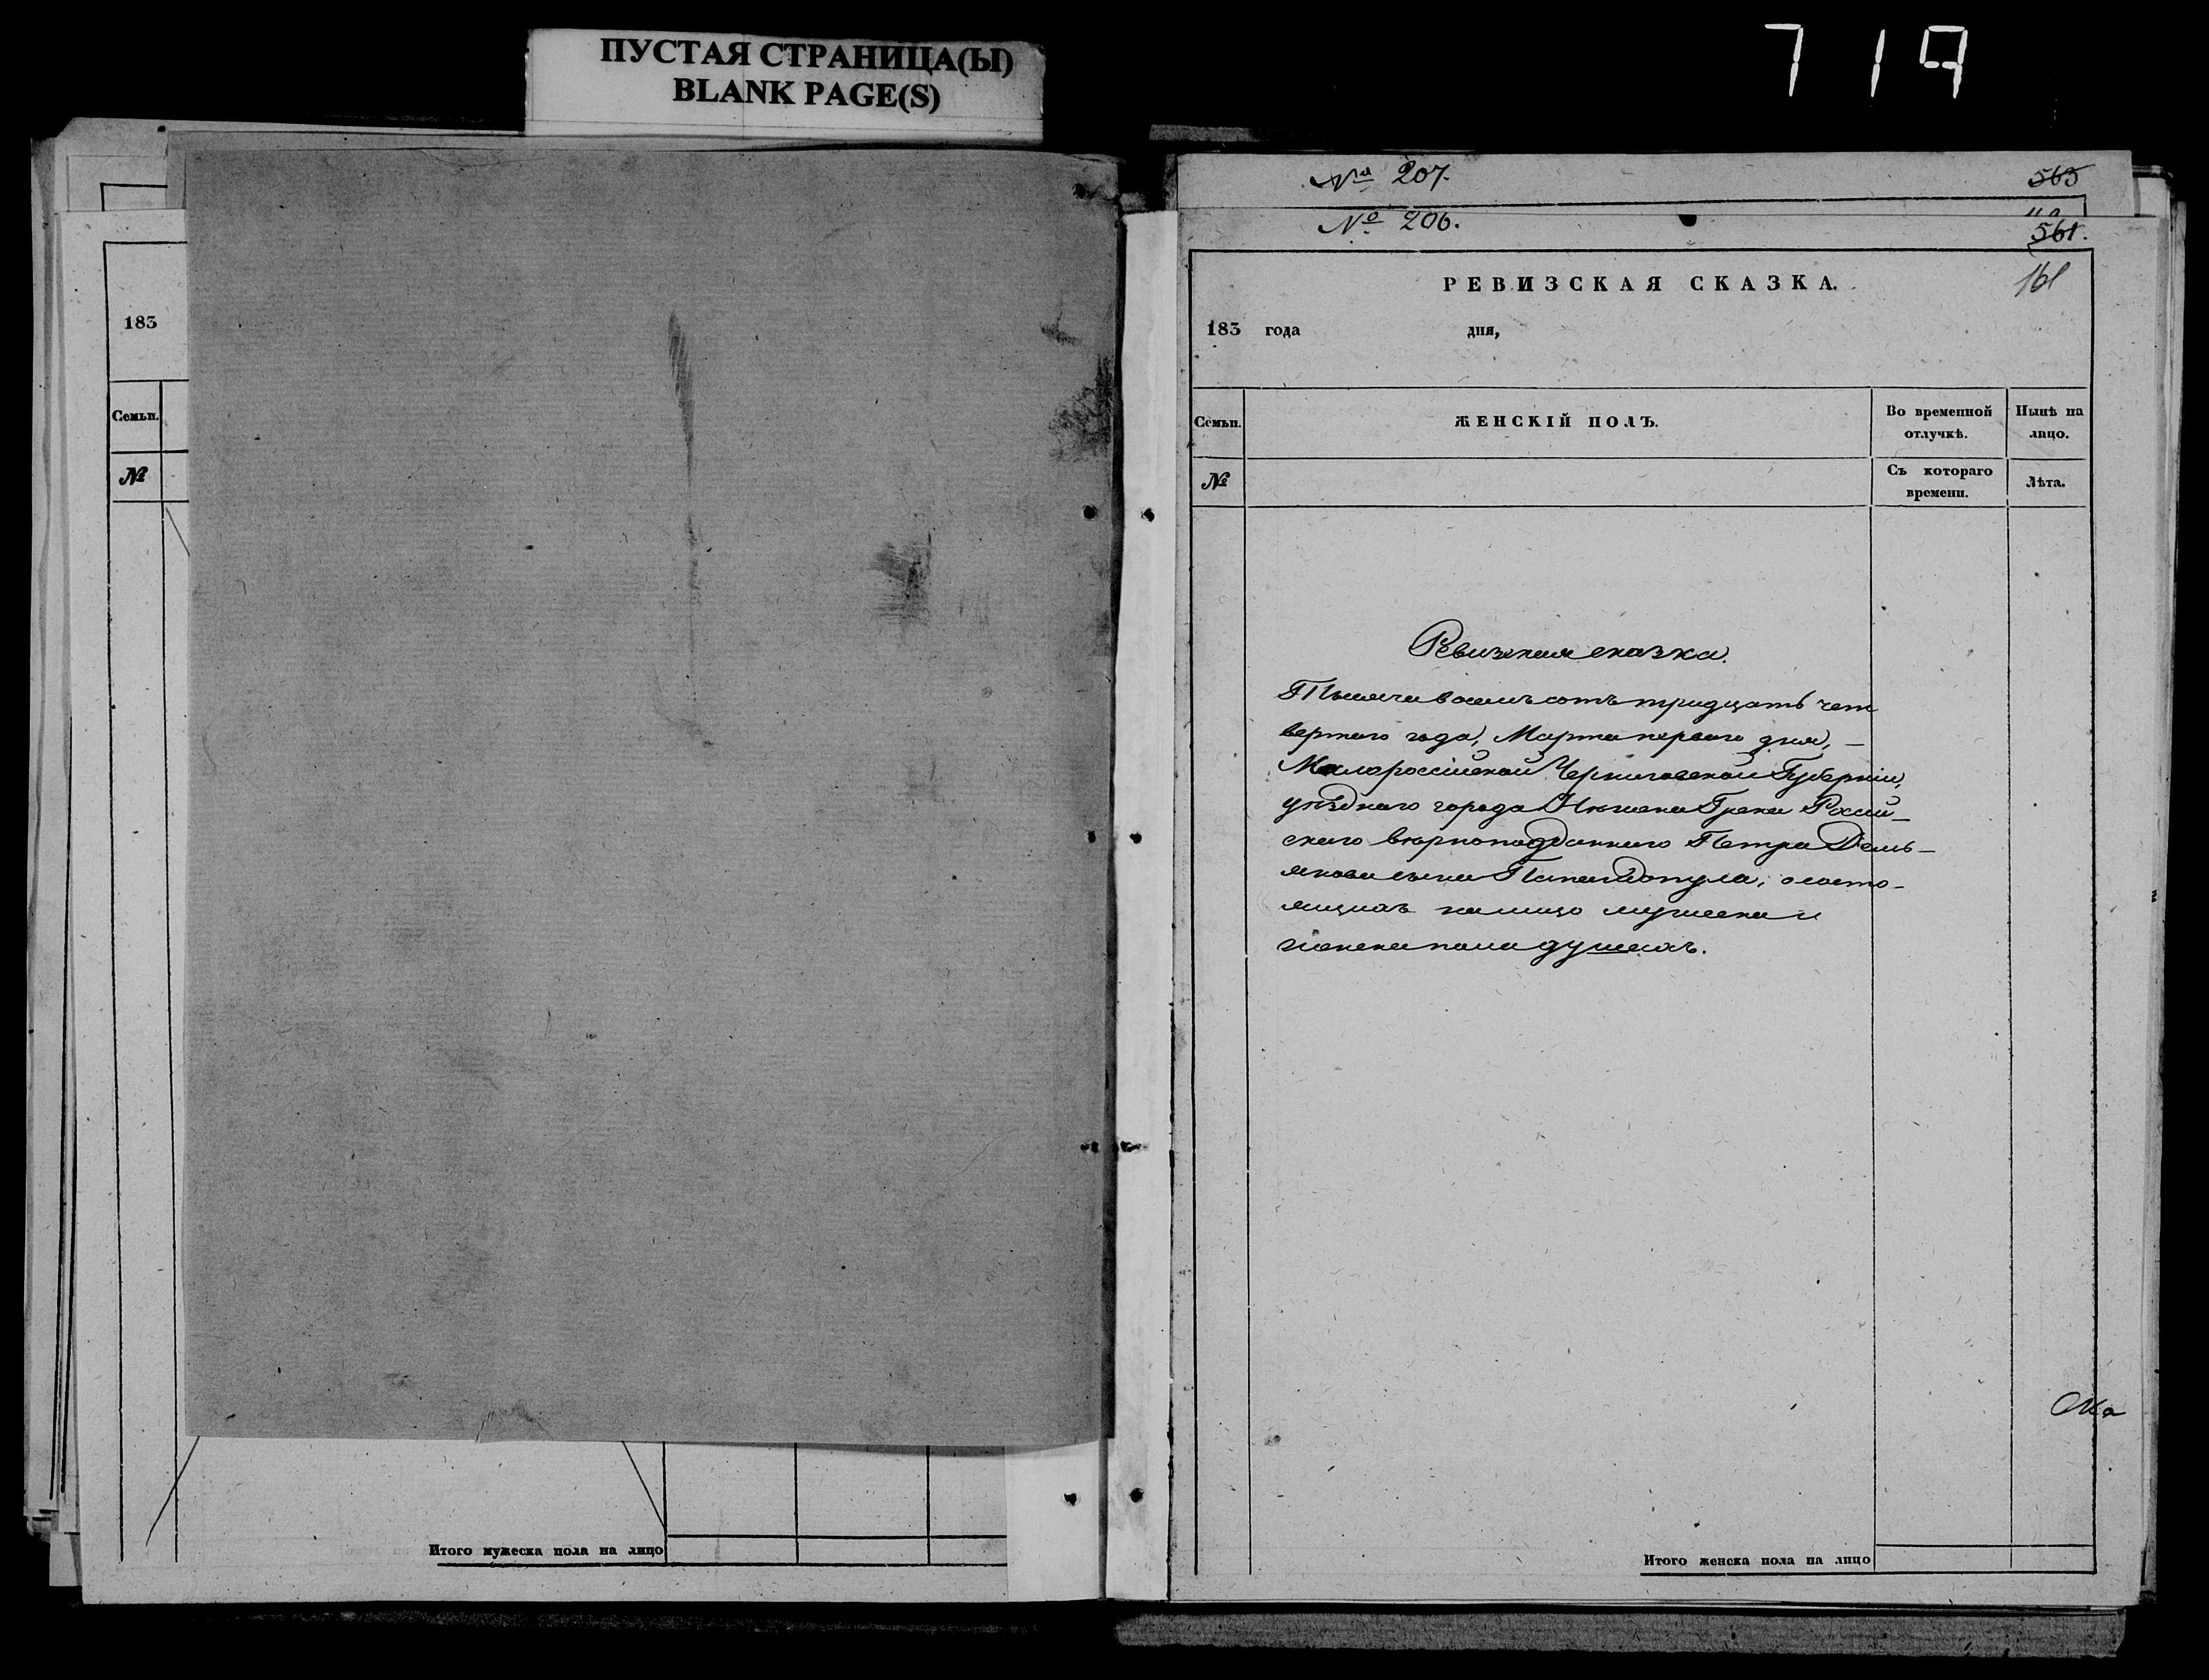 ПУСТАЯ СТРАНИЦА(Ы)
BLANK PAGE(S)
719
183
Семьи.
№
Итого мужеска пола на лицо
№ 207.
565
№ 206.
561.
161
РЕВИЗСКАЯ СКАЗКА.
183 года дня,
Семьи.
ЖЕНСКІЙ ПОЛЪ.
Во временной отлучкѣ.
Нынѣ на лицо.
№
Съ котораго времени.
Лѣта.
Ревизская сказка.
Тысяча восемь сотъ тридцать чет
вертого года, Марта первого дня, —
Малороссійской Черниговской Губерніи,
уѣздного города Нежина Грека Россій-
ского вѣрноподданного Петра Демь-
янова сына Пападопула, о состо-
ящихъ налицо мужеска и
женска пола душахъ.
Итого женска пола на лицо